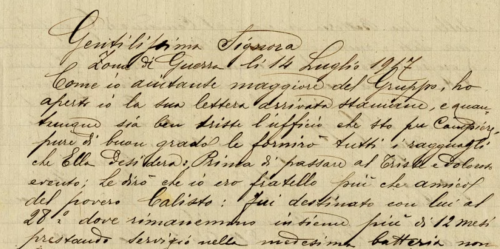 Gentilissima Signora
Zona di Guerra li 14 Luglio 1917
Come io aiutante maggiore del Gruppo, ho
aperto io la sua lettera arrivata stamane, e quan
tunque sia ben triste l'ufficio che sto per compier
pure di buon grado le fornirò tutti i ragguagli
che Ella desidera: Prima di passare al triste e doloroso
evento; Le dirò che io ero fratello più che amico
del povero Calisto: fui destinato con lui al
28° dove rimanemmo insieme più di 12 mesi
prestando servizio nella medesima batteria non